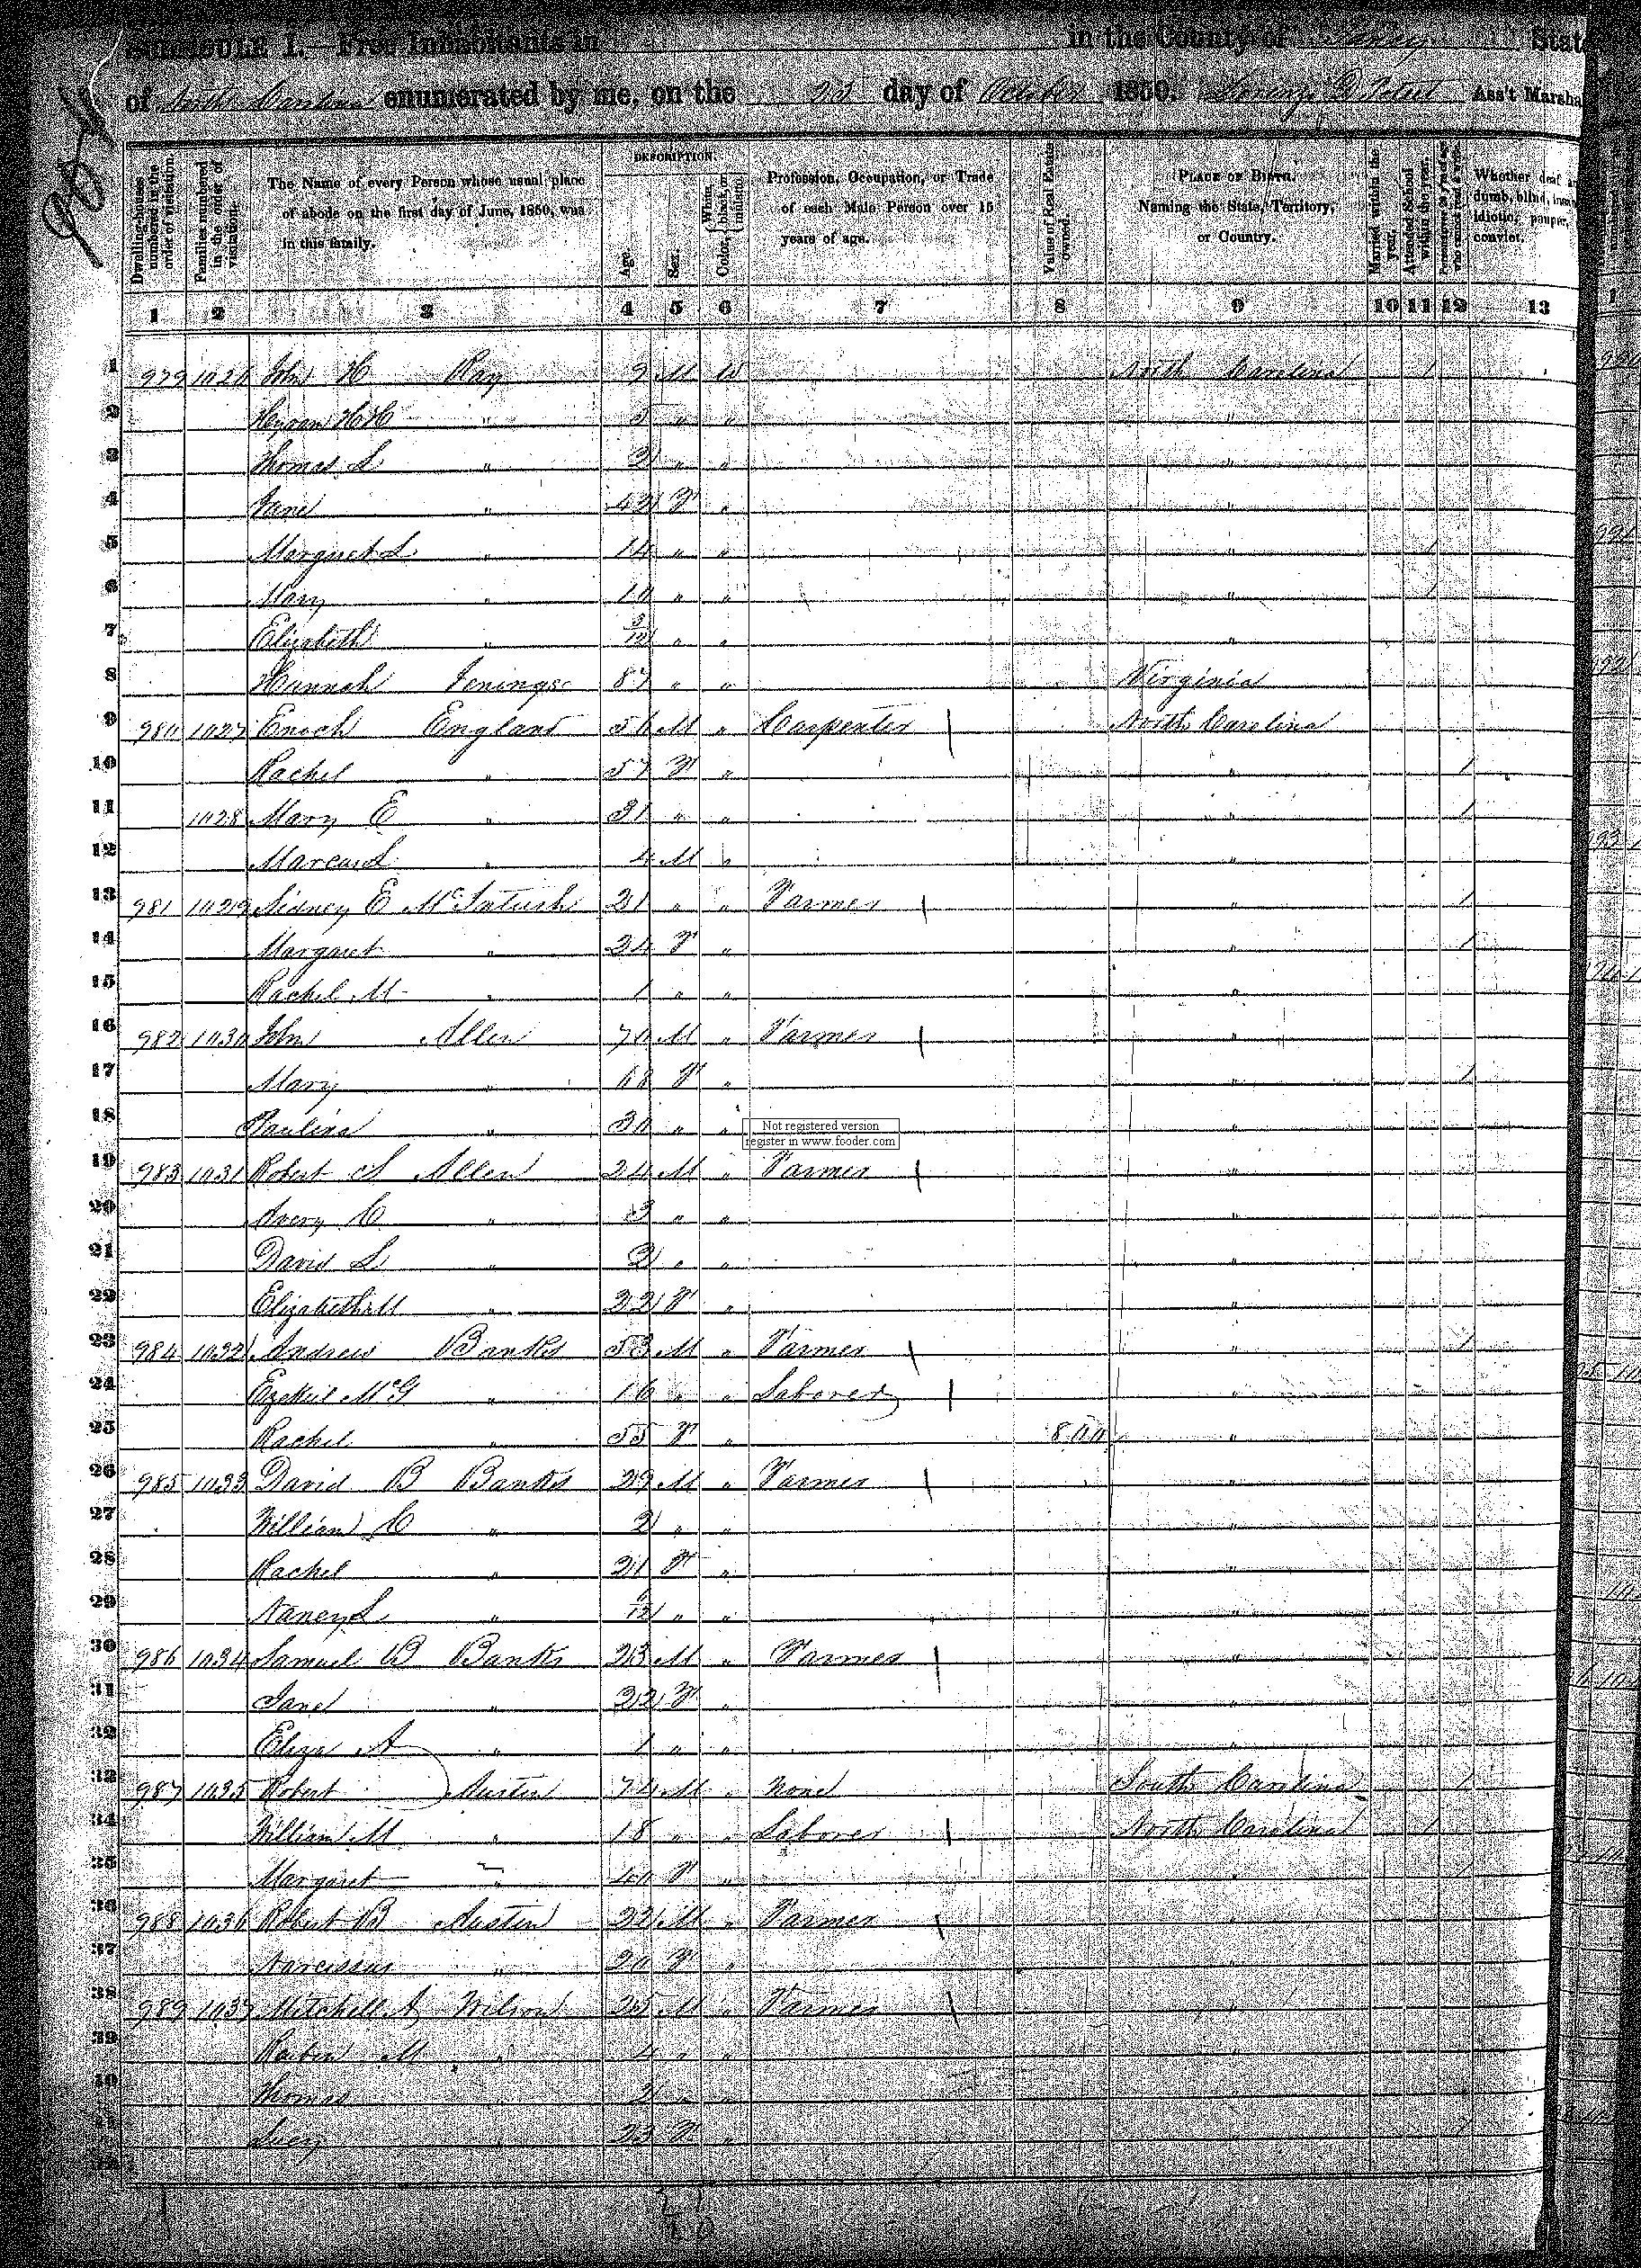 SCHEDULE I.—Free Inhabitants in in the County of Yancy State
of North Carolina enumerated by me, on the 23 day of October 1850. Ass't Marshal
Dwelling-houses numbered in the order of visitation.
Families numbered in the order of visitation.
The Name of every Person whose usual place of abode on the first day of June, 1850, was in this family.
DESCRIPTION.
Age.
Sex.
Color, White, black, or mulatto.
Profession, Occupation, or Trade of each Male Person over 15 years of age.
Value of Real Estate owned.
PLACE OF BIRTH. Naming the State, Territory, or Country.
Married within the year.
Attended School within the year.
Persons over 20 y'rs of age who cannot read & write.
Whether deaf and dumb, blind, insane, idiotic, pauper, convict.
1 2 3 4 5 6 7 8 9 10 11 12 13
1 979 1026 John H Ray 9 M W North Carolina 1
2 Hyram H H " 5 " " "
3 Thomas L " 2 " " "
4 Jane " 42 F " "
5 Margaret L " 14 " " " 1
6 Mary " 10 " " " 1
7 Elizabeth " 3/12 " " "
8 Hannah Jenings 87 " " Virginia
9 980 1027 Enoch England 56 M " Carpenter North Carolina
10 Rachel " 57 F " " 1
11 1028 Mary E " 31 " " " 1
12 Marcus L " 4 M " "
13 981 1029 Sidney E McIntush 21 " " Farmer " 1
14 Margaret " 24 F " " 1
15 Rachel M " 1 " " "
16 982 1030 John Allen 70 M " Farmer "
17 Mary " 68 F " " 1
18 Paulina " 30 " " "
Not registered version
register in www.fooder.com
19 983 1031 Robert S Allen 24 M " Farmer "
20 Avery C " 3 " " "
21 David L " 2 " " "
22 Elizabeth M " 22 F " "
23 984 1032 Andrew Banks 53 M " Farmer " 1
24 Ezekiel McG " 16 " " Laborer "
25 Rachel " 55 F " 800 "
26 985 1033 David B Banks 29 M " Farmer "
27 William C " 2 " " "
28 Rachel " 21 F " "
29 Nancy L " /12 " " "
30 986 1034 Samuel B Banks 23 M " Farmer "
31 Jane " 22 F " "
32 Eliza A " 1 " " "
33 987 1035 Robert Austin 74 M " None South Carolina 1
34 William M " 18 " " Laborer North Carolina 1
35 Margaret " 40 F " " 1
36 988 1036 Robert B Austin 22 M " Farmer "
37 Narcissus " 20 F " "
38 989 1037 Mitchell A Wilson 25 M " Farmer "
39 M " 4 " " "
40 Thomas 2 " "
41 Lucy 23 F " 1